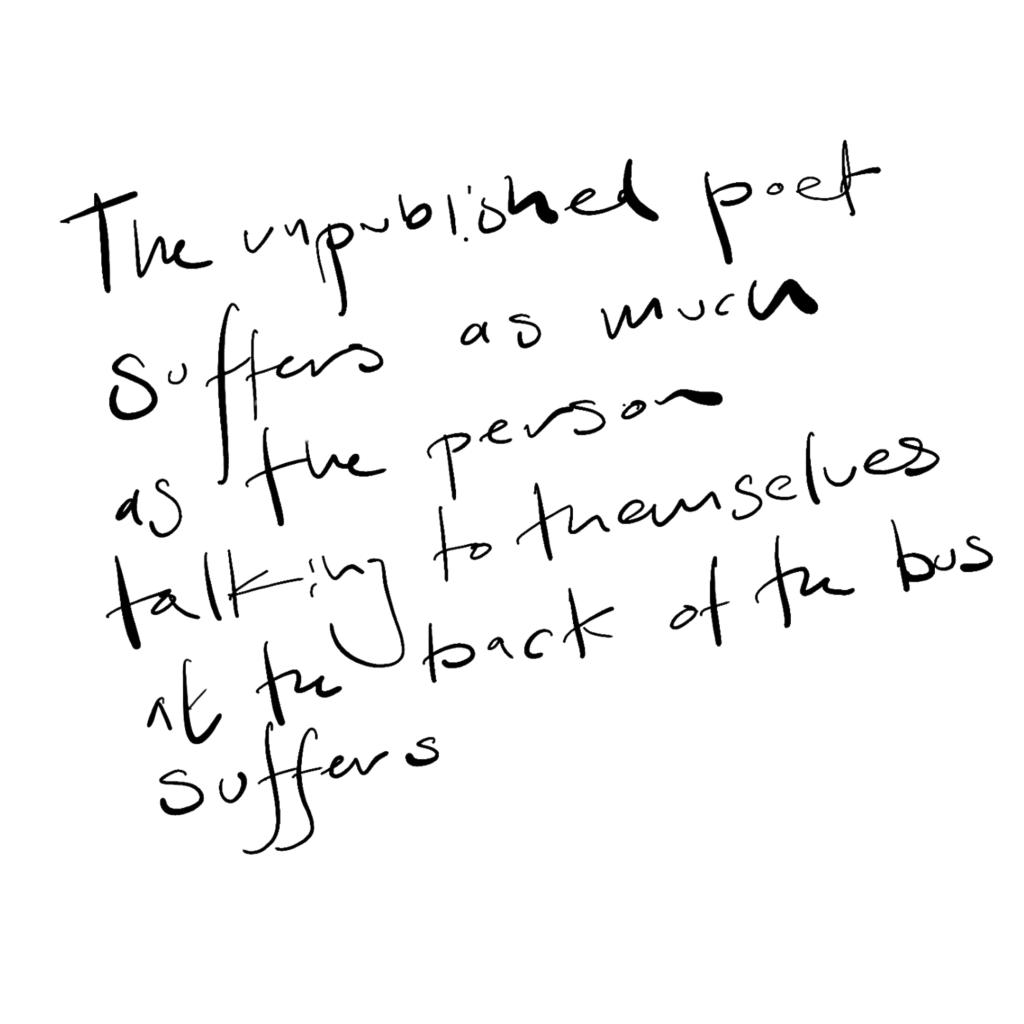 The unpublished poet
suffers as much
as the person
talking to themselves
at the back of the bus
suffers